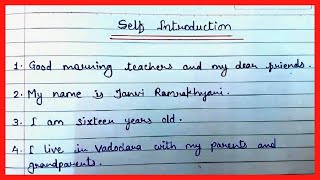 Self Introduction
1. Good morning teachers and my dear friends.
2. My name is Tanvi Ramrakhyani.
3. I am sixteen years old.
4. I live in Vadodara with my parents and
grandparents.